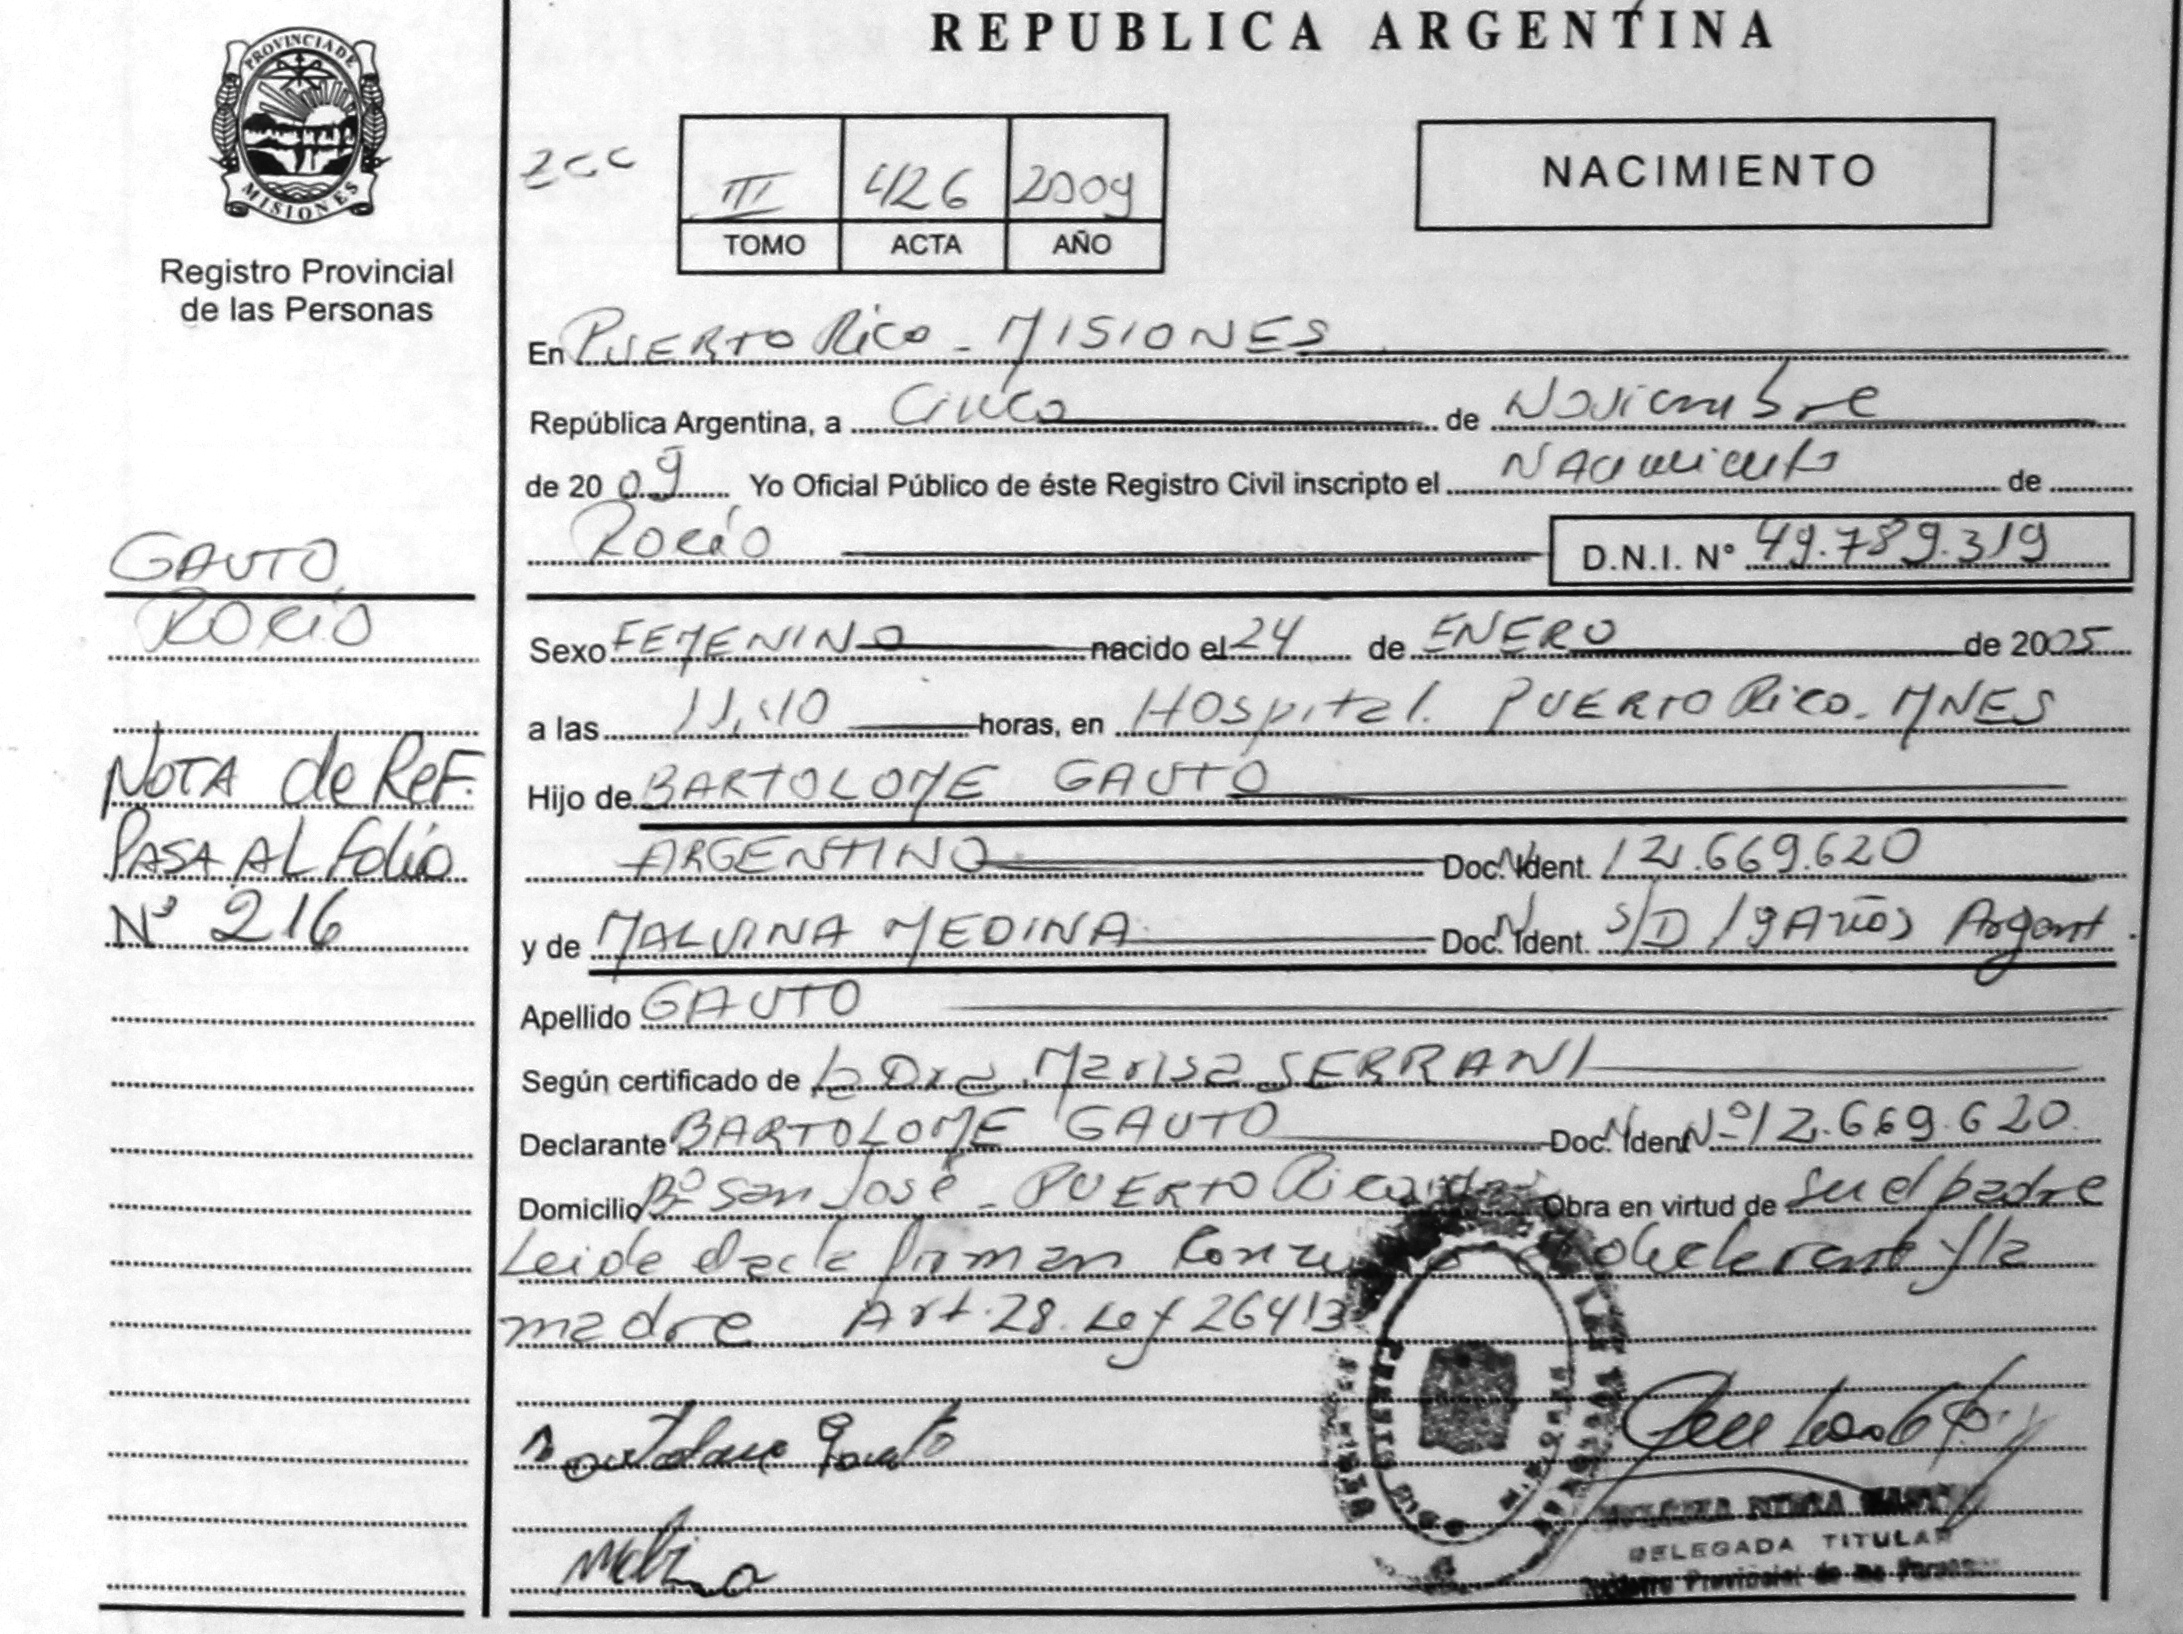 REPUBLICA ARGENTINA
PROVINCIA DE
MISIONES
Registro Provincial
de las Personas
III 426 2009
TOMO ACTA AÑO
NACIMIENTO
En PUERTO Rico - MISIONES
República Argentina, a Cinco de Noviembre
de 2009 Yo Oficial Público de éste Registro Civil inscripto el Nacimiento de
Rocío D.N.I. N° 49.789.319
GAUTO
ROCIO
Sexo FEMENINO nacido el 24 de ENERO de 2005
a las 11,10 horas, en Hospital. PUERTO Rico. MNES
NOTA de ReF.
PASA AL Folio
N° 216
Hijo de BARTOLOME GAUTO
ARGENTINO Doc. Ident. 12.669.620
y de MALVINA MEDINA Doc. Ident. S/D 19 Años Argent.
Apellido GAUTO
Según certificado de la Dra. Marisa SERRANI
Declarante BARTOLOME GAUTO Doc. Ident N° 12.669.620
Domicilio B° San José - PUERTO Rico Obra en virtud de ser el padre
Leida el acta firman declarante y la
madre Art. 28. Ley 26413
DELEGADA TITULAR
Registro Provincial de las Personas